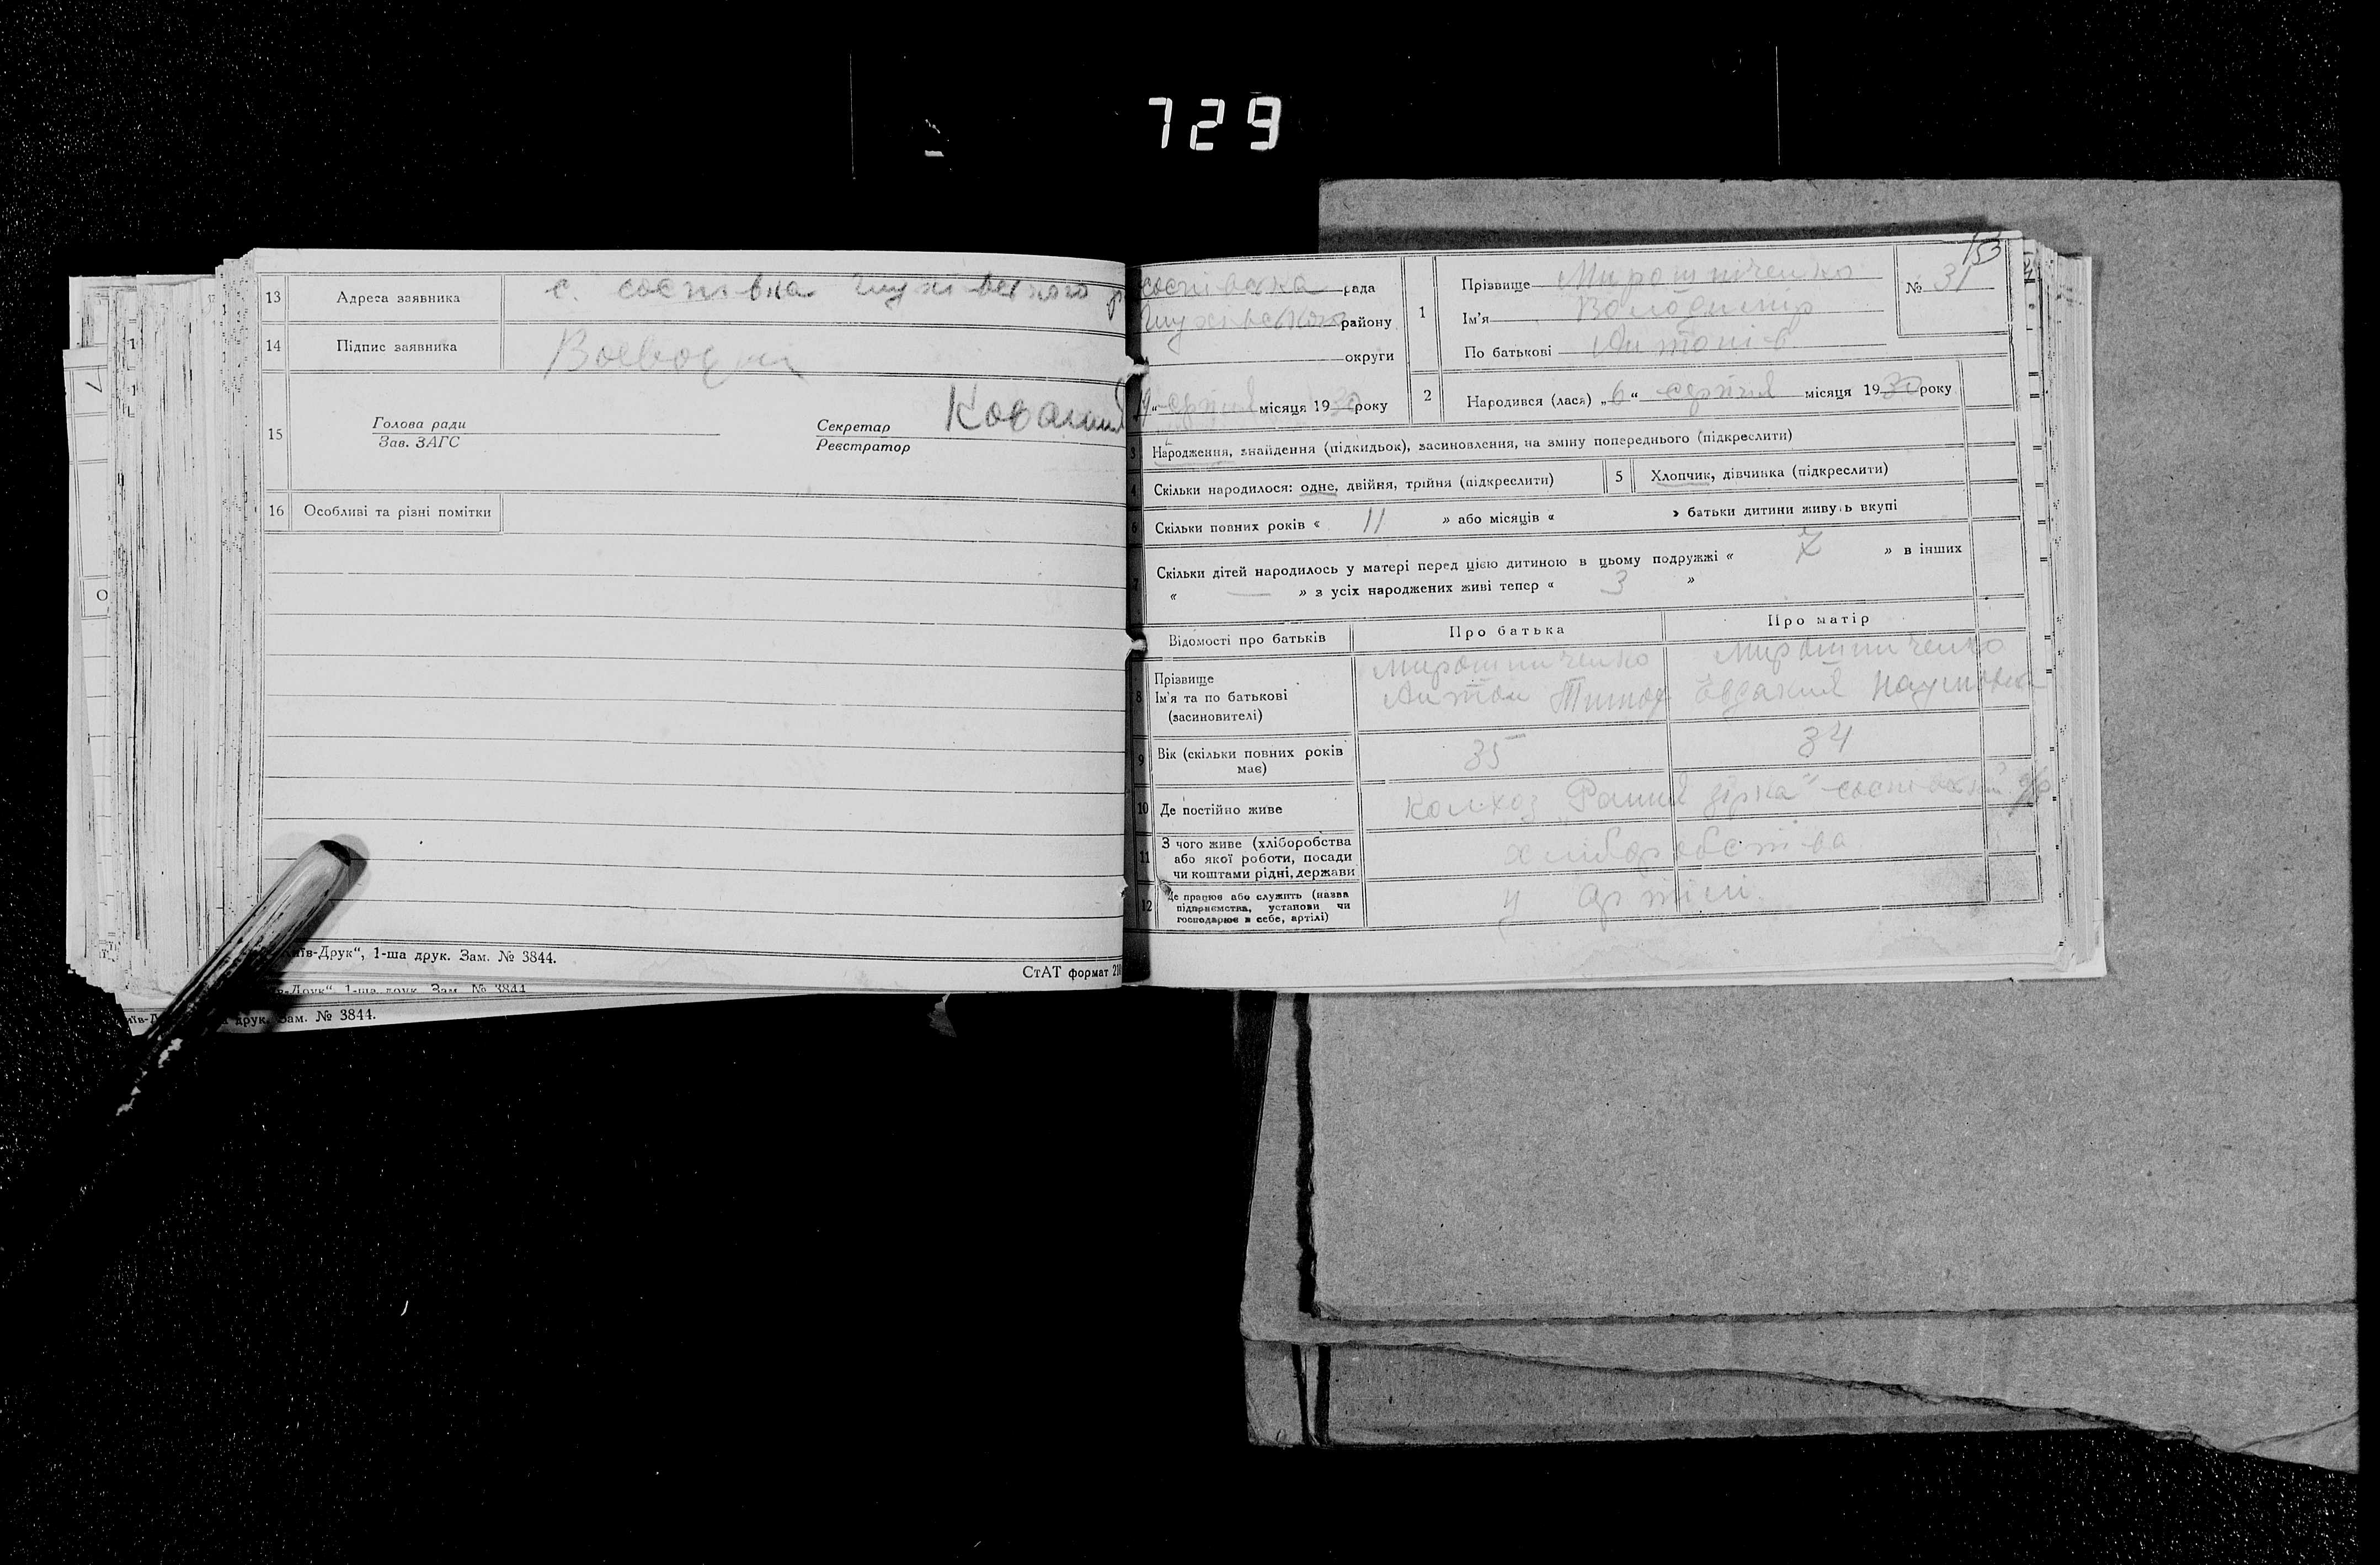 729
13 Адреса заявника с. соснівка глухівського р
14 Підпис заявника
15 Голова ради
Зав. ЗАГС
Секретар
Реєстратор
16 Особливі та різні помітки
їв-Друк“, 1-ша друк. Зам. № 3844.
СтАТ формат
в-Друк“ 1-ша друк. Зам. № 3844
друк. Зам. № 3844.
153
соснівська рада
Глухівського району
округи
серпня місяця 1930 року
1 Прізвище Мирошніченко
Ім'я Володимір
По батькові Антонів
№ 31
2 Народився (лася) „6“ серпня місяця 1930 року
3 Народження, знайдення (підкидьок), засиновлення, на зміну попереднього (підкреслити)
4 Скільки народилося: одне, двійня, трійня (підкреслити)
5 Хлопчик, дівчинка (підкреслити)
6 Скільки повних років « 11 » або місяців « » батьки дитини живуть вкупі
7 Скільки дітей народилось у матері перед цією дитиною в цьому подружжі « 7 » в інших
« — » з усіх народжених живі тепер « 3 »
Відомості про батьків Про батька Про матір
8 Прізвище
Ім'я та по батькові
(засиновителі)
Мирошниченко
Антон Тимоф
Мирошниченко
Євдакия Наумовна
9 Вік (скільки повних років має) 35 34
10 Де постійно живе колхоз „Рання зірка“ соснівський
11 З чого живе (хліборобства
або якої роботи, посади
чи коштами рідні, держави
хліборобства
12 Де працює або служить (назва
підприємства, установи чи
господарює в себе, артілі)
у артілі